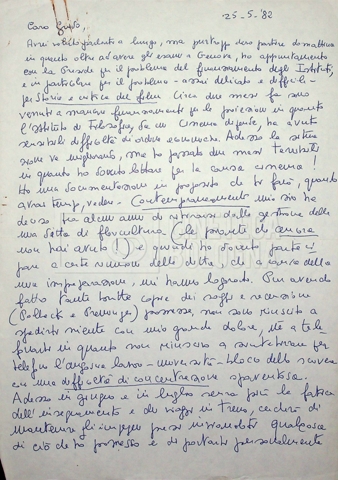 25-5-'82
Caro
Avrei voluto parlarti a lungo, ma purtroppo devo partire domattina
in quanto oltre ad avere gli esami a Genova, ho appuntamento
con la Preside per il problema del finanziamento degli Istituti,
e in particolare per il problema - assai delicato e difficile -
per Storia e critica del film. Circa due mesi fa sono
venuti a mancare finanziamenti per le proiezioni in quanto
l'Istituto di Filosofia, da cui Cinema dipende, ha avuto
sensibili difficoltà di ordine economiche. Adesso la situa
zione va migliorando, ma ho passato due mesi terribili
in quanto ho dovuto lottare per la causa cinema!
Ho una documentazione in proposito che ti farò, quando
avrai tempo, vedere. Contemporaneamente mio zio ha
deciso tra alcuni anni di ritirarsi dalla gestione della
sua ditta di floricultura (le piante di ancora
non hai avuto!) e quindi ho dovuto parteci
pare a certe riunioni della ditta che a causa della
mia impreparazione, mi hanno logorato. Pur avendo
fatto tante brutte copie dei saggi e recensioni
(Pollack e Preminger) promesse, non sono riuscito a
spedirti niente con mio grande dolore, né a tele
fonarti in quanto non riuscivo a
l'angoscia lavoro - università - blocco dello scrivere
con una difficoltà di concentrazione spaventosa.
Adesso in giugno e in luglio senza più la fatica
dell'insegnamento e dei viaggi in treno, cercherò di
mantenere gli impegni presi inviandoti qualcosa
di ciò che ho promesso e di portarti personalmente